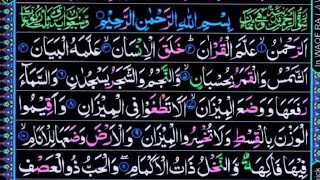 بِسْمِ اللّٰهِ الرَّحْمٰنِ الرَّحِيْمِ
اَلرَّحْمٰنُ عَلَّمَ الْقُرْاٰنَ خَلَقَ الْاِنْسَانَ عَلَّمَهُ الْبَيَانَ
اَلشَّمْسُ وَالْقَمَرُ بِحُسْبَانٍ وَّالنَّجْمُ وَالشَّجَرُ يَسْجُدٰنِ وَالسَّمَآءَ
رَفَعَهَا وَوَضَعَ الْمِيْزَانَ اَلَّا تَطْغَوْا فِى الْمِيْزَانِ وَاَقِيْمُوا
الْوَزْنَ بِالْقِسْطِ وَلَا تُخْسِرُوا الْمِيْزَانَ وَالْاَرْضَ وَضَعَهَا لِلْاَنَامِ
فِيْهَا فَاكِهَةٌ وَّالنَّخْلُ ذَاتُ الْاَكْمَامِ وَالْحَبُّ ذُو الْعَصْفِ